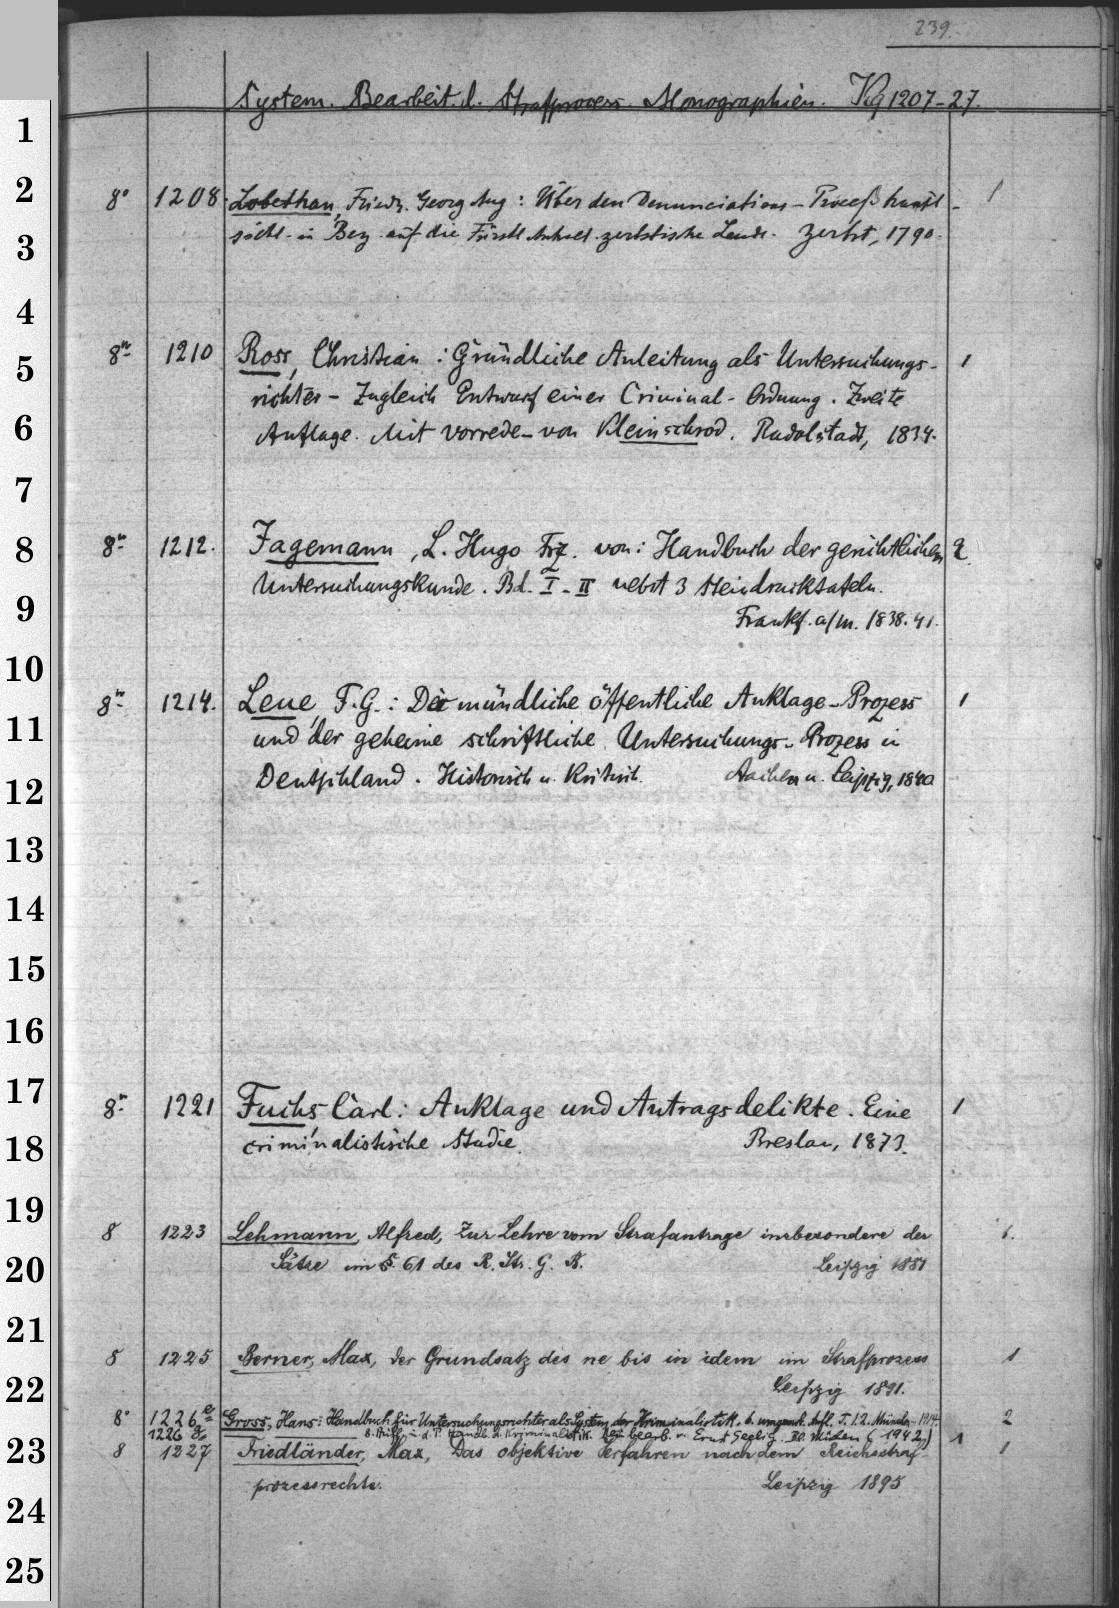 239.
System. Bearbeit. d. Strafprocess. Monographien. Kg 1207-27.
8° 1208. Lobethan, Friedr. Georg Aug: Über den Denunciations-Proceß haupt- 1
sächl. in Bez. auf die Fürstl. Anhalt. zerbstische Lande. Zerbst, 1790.
8° 1210 Ross, Christian: Gründliche Anleitung als Untersuchungs- 1
richter - Zugleich Entwurf einer Criminal-Ordnung. Zweite
Auflage. Mit Vorrede von Kleinschrod. Rudolstadt, 1834.
8° 1212. Jagemann, L. Hugo Frz. von: Handbuch der gerichtlichen 2
Untersuchungskunde. Bd. I-II nebst 3 Steindrucktafeln.
Frankf. a/m. 1838.41.
8° 1214. Leue, F.G.: Der mündliche öffentliche Anklage-Prozess 1
und der geheime schriftliche Untersuchungs-Prozess in
Deutschland. Historisch u. Kritisch. Aachen u. Leipzig, 1840
8° 1221 Fuchs, Carl: Anklage und Antragsdelikte. Eine 1
criminalistische Studie. Breslau, 1873.
8 1223 Lehmann, Alfred, Zur Lehre vom Strafantrage insbesondere der 1.
Sätze im § 61 des R. Str. G. B. Leipzig 1881
8 1225 Berner, Max, der Grundsatz des ne bis in idem im Strafprozess 1
Leipzig 1891.
8° 1226 Gross, Hans: Handbuch für Untersuchungsrichter als System der Kriminalistik. 6. umgearb. Aufl. T. 1.2. München 1914 2
1226 8. Aufl. d. Handb. d. Kriminalistik. Neu bearb. v. Ernst Seelig. München (1942) 1
8 1227 Friedländer, Max, Das objektive Verfahren nach dem Reichsstraf- 1
prozessrechte. Leipzig 1895
1
2
3
4
5
6
7
8
9
10
11
12
13
14
15
16
17
18
19
20
21
22
23
24
25